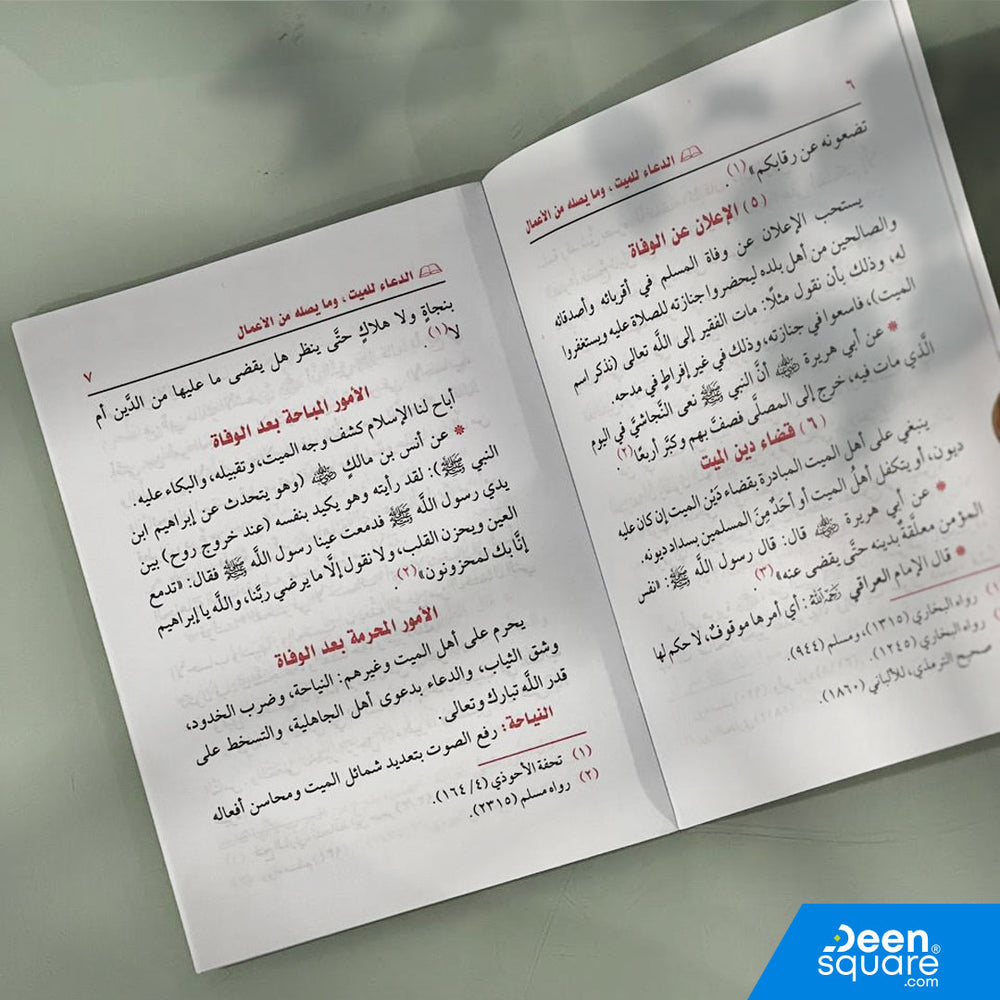 ٦
الدعاء للميت ، وما يصله من الأعمال
تضعونه عن رقابكم»(١).
(٥) الإعلان عن الوفاة
يستحب الإعلان عن وفاة المسلم في أقربائه وأصدقائه
والصالحين من أهل بلده ليحضروا جنازته للصلاة عليه ويستغفروا
له، وذلك بأن نقول مثلًا: مات الفقير إلى اللَّه تعالى (نذكر اسم
الميت)، فاسعوا في جنازته، وذلك في غير إفراطٍ في مدحه.
* عن أبي هريرة رضي الله عنه أنَّ النبي ﷺ نعى النَّجاشيَّ في اليوم
الَّذي مات فيه، خرج إلى المصلَّى فصفَّ بهم وكبَّر أربعًا(٢).
(٦) قضاء دين الميت
ينبغي على أهل الميت المبادرة بقضاء دَيْن الميت إن كان عليه
ديون، أو يتكفل أهلُ الميت أو أحَدٌ مِنَ المسلمين بسداد ديونه.
* عن أبي هريرة رضي الله عنه قال: قال رسول اللَّه ﷺ: «نفس
المؤمن معلَّقةٌ بدينه حتَّى يقضى عنه»(٣).
* قال الإمام العراقي رحمه الله: أي أمرها موقوفٌ، لا حكم لها
(١) رواه البخاري (١٣١٥)، ومسلم (٩٤٤).
رواه البخاري (١٢٤٥).
صحيح الترمذي، للألباني (١٨٦٠).
الدعاء للميت ، وما يصله من الأعمال
٧
بنجاةٍ ولا هلاكٍ حتَّى ينظر هل يقضى ما عليها من الدَّين أم
لا(١).
الأمور المباحة بعد الوفاة
أباح لنا الإسلام كشف وجه الميت، وتقبيله، والبكاء عليه.
* عن أنس بن مالكٍ رضي الله عنه (وهو يتحدث عن إبراهيم ابن
النبي ﷺ): لقد رأيته وهو يكيد بنفسه (عند خروج روح) بين
يدي رسول اللَّه ﷺ فدمعت عينا رسول اللَّه ﷺ فقال: «تدمع
العين ويحزن القلب، ولا نقول إلَّا ما يرضي ربَّنا، واللَّه يا إبراهيم
إنَّا بك لمحزونون»(٢).
الأمور المحرمة بعد الوفاة
يحرم على أهل الميت وغيرهم: النياحة، وضرب الخدود،
وشق الثياب، والدعاء بدعوى أهل الجاهلية، والتسخط على
قدر اللَّه تبارك وتعالى.
النياحة: رفع الصوت بتعديد شمائل الميت ومحاسن أفعاله
(١) تحفة الأحوذي (٤/ ١٦٤).
(٢) رواه مسلم (٢٣١٥).
Deen®
square
.com